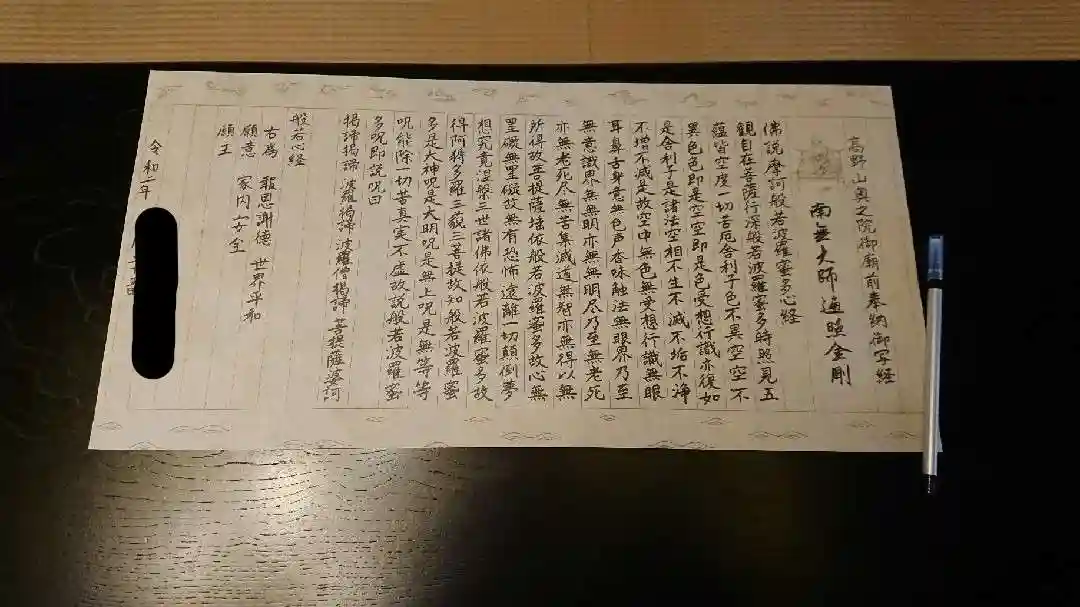 高野山奥之院御廟前奉納御写経
南無大師遍照金剛
佛説摩訶般若波羅蜜多心経
観自在菩薩行深般若波羅蜜多時照見五
蘊皆空度一切苦厄舎利子色不異空空不
異色色即是空空即是色受想行識亦復如
是舎利子是諸法空相不生不滅不垢不浄
不増不減是故空中無色無受想行識無眼
耳鼻舌身意無色声香味触法無眼界乃至
無意識界無無明亦無無明尽乃至無老死
亦無老死尽無苦集滅道無智亦無得以無
所得故菩提薩埵依般若波羅蜜多故心無
罣礙無罣礙故無有恐怖遠離一切顛倒夢
想究竟涅槃三世諸佛依般若波羅蜜多故
得阿耨多羅三藐三菩提故知般若波羅蜜
多是大神呪是大明呪是無上呪是無等等
呪能除一切苦真実不虚故説般若波羅蜜
多呪即説呪曰
掲諦掲諦 波羅掲諦 波羅僧掲諦 菩提薩婆訶
般若心経
右為 報恩謝徳 世界平和
願意 家内安全
願主
令和二年